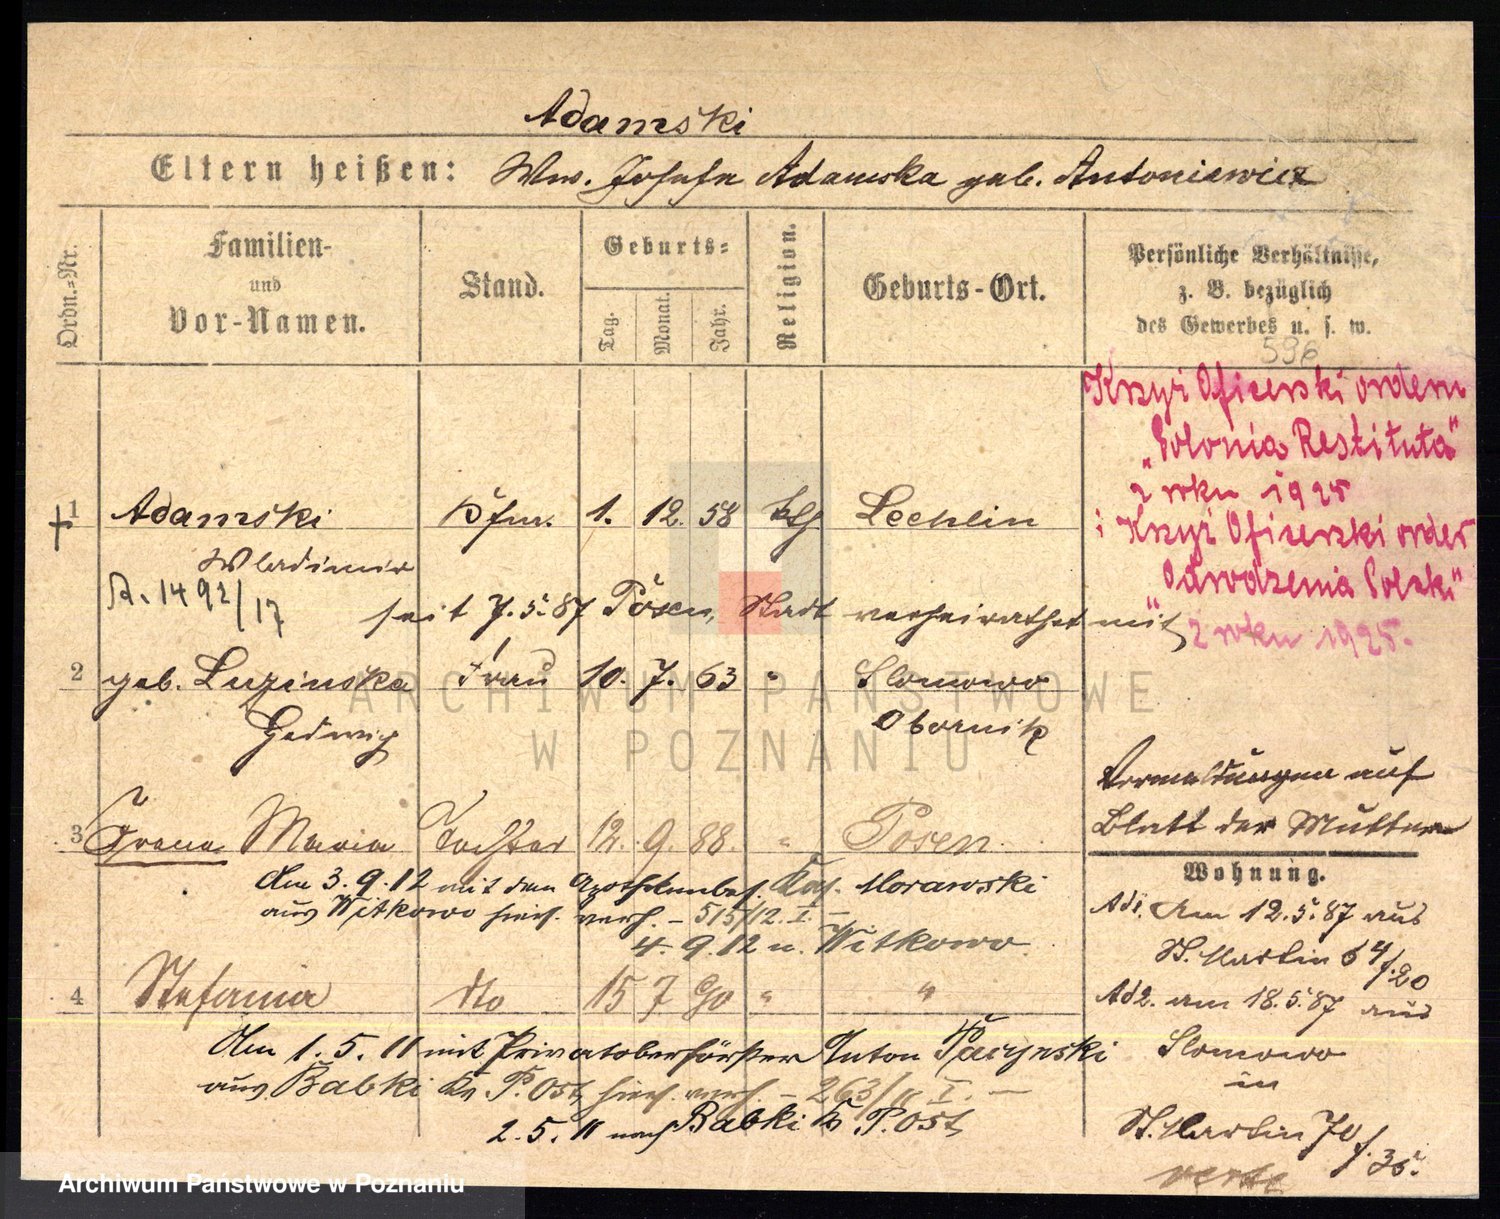 Adamski
Eltern heißen: Wwe. Josefa Adamska geb. Antoniewicz
Ordn.-Nr.
Familien-
und
Vor-Namen.
Stand.
Geburts-
Tag.
Monat.
Jahr.
Religion.
Geburts-Ort.
Persönliche Verhältnisse,
z. B. bezüglich
des Gewerbes u. s. w.
596
Krzyż Oficerski orderu
"Polonia Restituta"
z roku 1925
i Krzyż Oficerski order
"Odrodzenia Polski"
z roku 1925.
1 Adamski 1. 12. 58 kth Lechlin
Wladimir
A. 1492/17
seit 7.5.87 Posen, Stadt verheirathet mit
2 geb. Luzinska Frau 10. 7. 63 " Slomowo
Hedwig Obornik
Vermeldungen auf
Blatt der Mutter
3 Irena Maria Tochter 12. 9. 88. " Posen.
Am 3.9.12 mit dem Apothekenbes. Kas. Morawski
aus Witkowo hier verh. – 515/12. I –
4. 9. 12 n. Witkowo
4 Stefania dto 15 7 90 " "
Am 1. 5. 11 mit Privatoberförster Anton Paczynski
aus Babki Kr. P. Ost, hier verh. – 263/11 I. –
2. 5. 11 nach Babki Kr. P. Ost
Wohnung.
Ad1. Am 12.5.87 aus
St. Martin 64 f. 20
Ad2. am 18.5.87 aus
Slomowo
in
St. Martin 70 f. 35.
ARCHIWUM PAŃSTWOWE
W POZNANIU
Archiwum Państwowe w Poznaniu